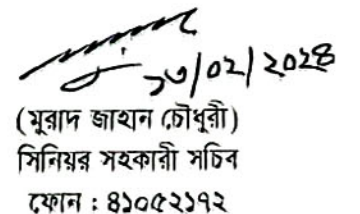 ১৩/০২/২০২৪
(মুরাদ জাহান চৌধুরী)
সিনিয়র সহকারী সচিব
ফোন : ৪১০৫২১৭২